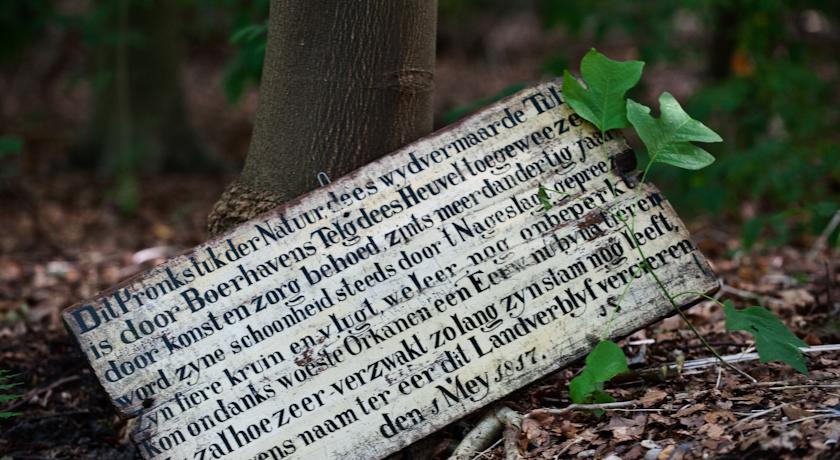 Dit Pronkstuk der Natuur, dees wydvermaarde Tul
is door Boerhavens Telg dees Heuvel toegeweeze
door konst en zorg behoed, zints meer dan dertig jaar
word zyne schoonheid steeds door 't Nageslagt gepreez
zyn fiere kruin en vlugt, weleer nog onbeperk
kon ondanks woeste Orkanen een Eeuw nu byna teren
zal hoe zeer verzwakt zo lang zyn stam nog leeft,
ens naam ter eer dit Landverblyf vereeren
den 1 Mey 1817.